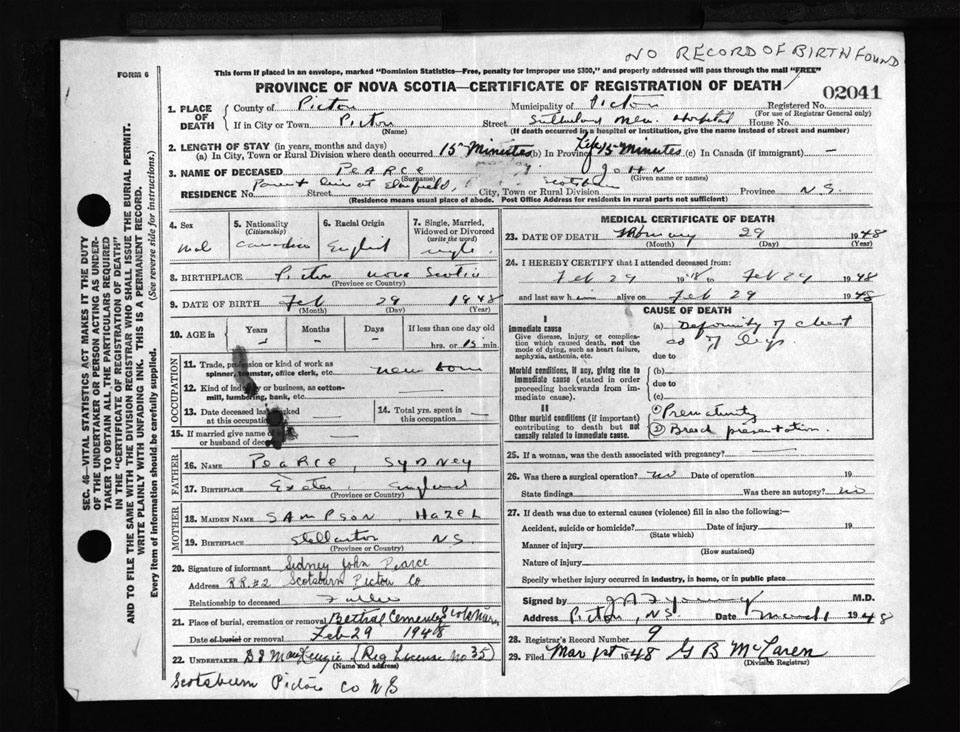 NO RECORD OF BIRTH FOUND
FORM 6
This form if placed in an envelope, marked "Dominion Statistics—Free, penalty for improper use $300," and properly addressed will pass through the mail "FREE"
PROVINCE OF NOVA SCOTIA—CERTIFICATE OF REGISTRATION OF DEATH
02041
1. PLACE OF DEATH
County of Pictou Municipality of Pictou Registered No.
(For use of Registrar General only)
If in City or Town Pictou Street Sutherland Mem. Hospital House No.
(Name) (If death occurred in a hospital or institution, give the name instead of street and number)
2. LENGTH OF STAY (in years, months and days)
(a) In City, Town or Rural Division where death occurred 15 Minutes (b) In Province Life 15 Minutes (c) In Canada (if immigrant) —
3. NAME OF DECEASED PEARCE JOHN
(Surname) (Given name or names)
RESIDENCE No. Street City, Town or Rural Division Scotsburn Province N.S.
(Residence means usual place of abode. Post Office Address for residents in rural parts not sufficient)
4. Sex
Mal
5. Nationality
(Citizenship)
Canadian
6. Racial Origin
English
7. Single, Married, Widowed or Divorced
(write the word)
single
8. BIRTHPLACE Pictou Nova Scotia
(Province or Country)
9. DATE OF BIRTH Feb 29 1948
(Month) (Day) (Year)
10. AGE in
Years Months Days If less than one day old
hrs. or 15 min.
OCCUPATION
11. Trade, profession or kind of work as spinner, teamster, office clerk, etc. new born
12. Kind of industry or business, as cotton-mill, lumbering, bank, etc.
13. Date deceased last worked at this occupation
14. Total yrs. spent in this occupation
15. If married give name of wife or husband of deceased
FATHER
16. NAME PEARCE, SYDNEY
17. BIRTHPLACE Exeter England
(Province or Country)
MOTHER
18. MAIDEN NAME SAMPSON HAZEL
19. BIRTHPLACE Stellarton N.S.
(Province or Country)
20. Signature of informant Sidney John Pearce
Address RR#2 Scotsburn Pictou Co
Relationship to deceased Father
21. Place of burial, cremation or removal Bethel Cemetery Scotsburn
Date of burial or removal Feb 29 1948
22. UNDERTAKER D J MacKenzie (Reg License No 35)
(Name and address)
Scotsburn Pictou Co N S
MEDICAL CERTIFICATE OF DEATH
23. DATE OF DEATH February 29 1948
(Month) (Day) (Year)
24. I HEREBY CERTIFY that I attended deceased from:
Feb 29 1948 to Feb 29 1948
and last saw him alive on Feb 29 1948
CAUSE OF DEATH
I
Immediate cause
Give disease, injury or complication which caused death, not the mode of dying, such as heart failure, asphyxia, asthenia, etc.
(a) Deformity of chest
due to
Morbid conditions, if any, giving rise to immediate cause (stated in order proceeding backwards from immediate cause).
(b)
due to
(c)
II
Other morbid conditions (if important) contributing to death but not causally related to immediate cause.
① Prematurity
② Breech presentation.
25. If a woman, was the death associated with pregnancy?
26. Was there a surgical operation? no Date of operation 19
State findings Was there an autopsy? no
27. If death was due to external causes (violence) fill in also the following:—
Accident, suicide or homicide? Date of injury 19
(State which)
Manner of injury
(How sustained)
Nature of injury
Specify whether injury occurred in industry, in home, or in public place
Signed by M.D.
Address Pictou, NS Date March 1 1948
28. Registrar's Record Number 9
29. Filed Mar 1st 1948 G B McLaren
(Division Registrar)
SEC. 46—VITAL STATISTICS ACT MAKES IT THE DUTY
OF THE UNDERTAKER OR PERSON ACTING AS UNDER-
TAKER TO OBTAIN ALL THE PARTICULARS REQUIRED
IN THE "CERTIFICATE OF REGISTRATION OF DEATH"
AND TO FILE THE SAME WITH THE DIVISION REGISTRAR WHO SHALL ISSUE THE BURIAL PERMIT.
WRITE PLAINLY WITH UNFADING INK. THIS IS A PERMANENT RECORD.
Every item of information should be carefully supplied. (See reverse side for instructions.)